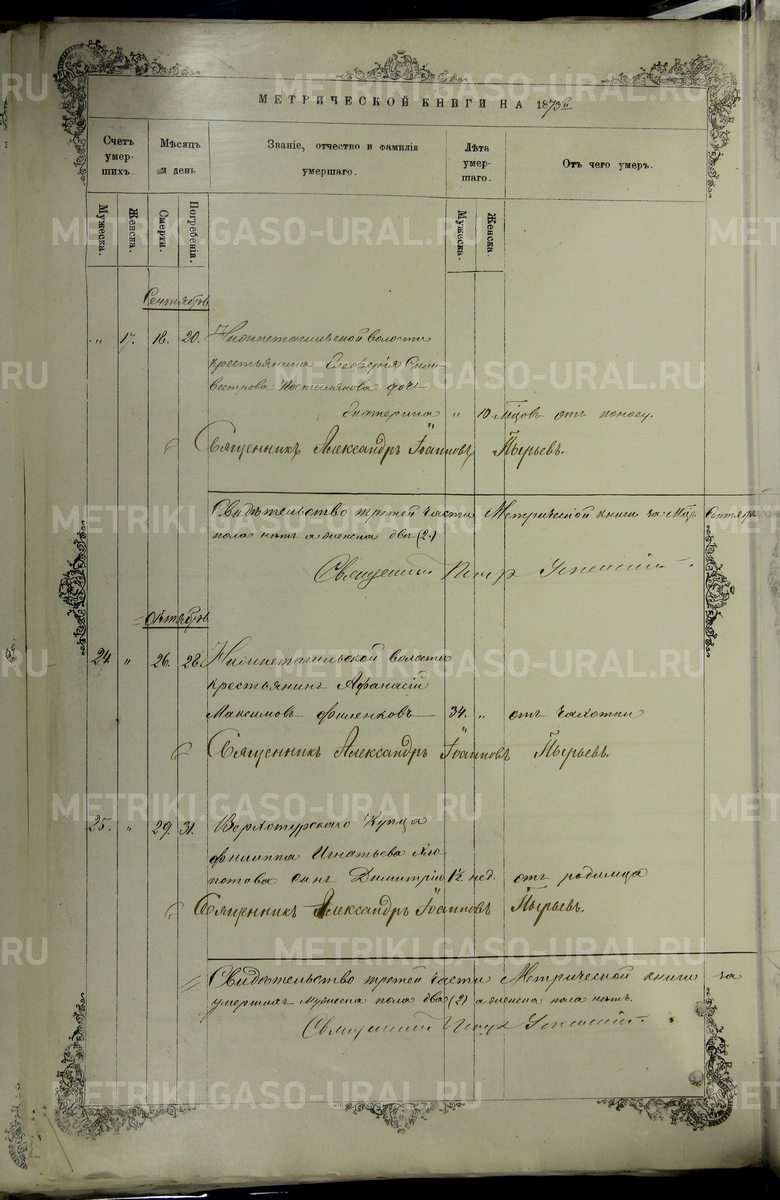 МЕТРИЧЕСКОЙ КНИГИ НА 18
Счетъ умер-шихъ.
Мѣсяцъ и день
Званіе, отчество и фамилія умершаго.
Лѣта умер-шаго.
Отъ чего умеръ.
Мужеска.
Женска.
Смерти.
Погребенія.
Мужеска.
Женска.
Сентябрь
" 17. 18. 20. Нижнетагильской волости
крестьянина Сили
вестрова дочь
Екатерина " 10 Мѣцовъ отъ поносу.
Священникъ Александръ Іоанновъ Пырьевъ.
Свидѣтельство третей части Метрической книги за Мцъ Сентябрь
пола нѣтъ а женска два (2)
Священникъ Петръ Успенскій
Октябрь
24. " 26. 28. Нижнетагильской волости
крестьянинъ Афанасій
Максимовъ Филенковъ 34. " отъ чахотки
Священникъ Александръ Іоанновъ Пырьевъ.
25. " 29. 31. Верхотурскаго Купца
Филиппа Игнатьева
сынъ Димитрій 1½ нед. отъ родимца
Священникъ Александръ Іоанновъ Пырьевъ.
Свидѣтельство третей части Метрической книги за
умершихъ Мужеска пола два (2) а женска пола нѣтъ.
Священникъ Петръ Успенскій
METRIKI.GASO-URAL.RU